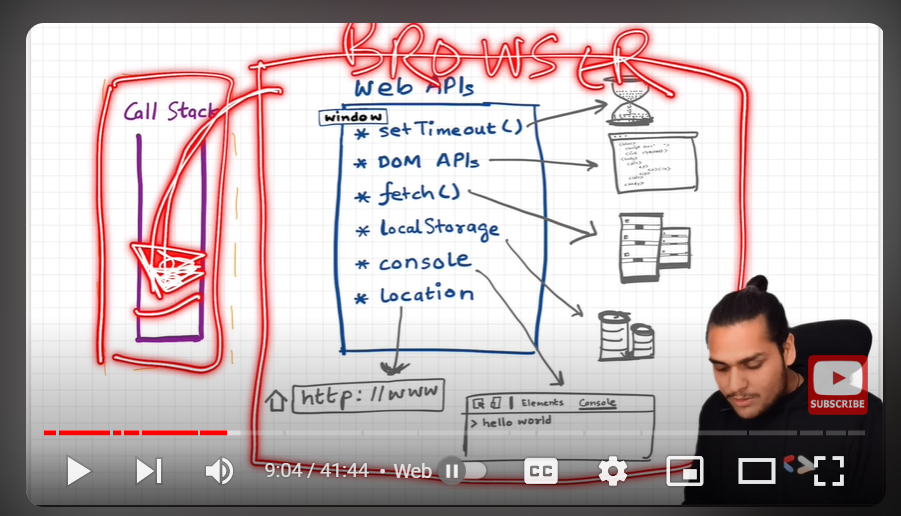 BROWSER
Call Stack
Web APIs
window
* setTimeout()
* DOM APIs
* fetch()
* localStorage
* console
* location
http://www
Elements Console
> hello world
SUBSCRIBE
9:04 / 41:44 • Web
CC